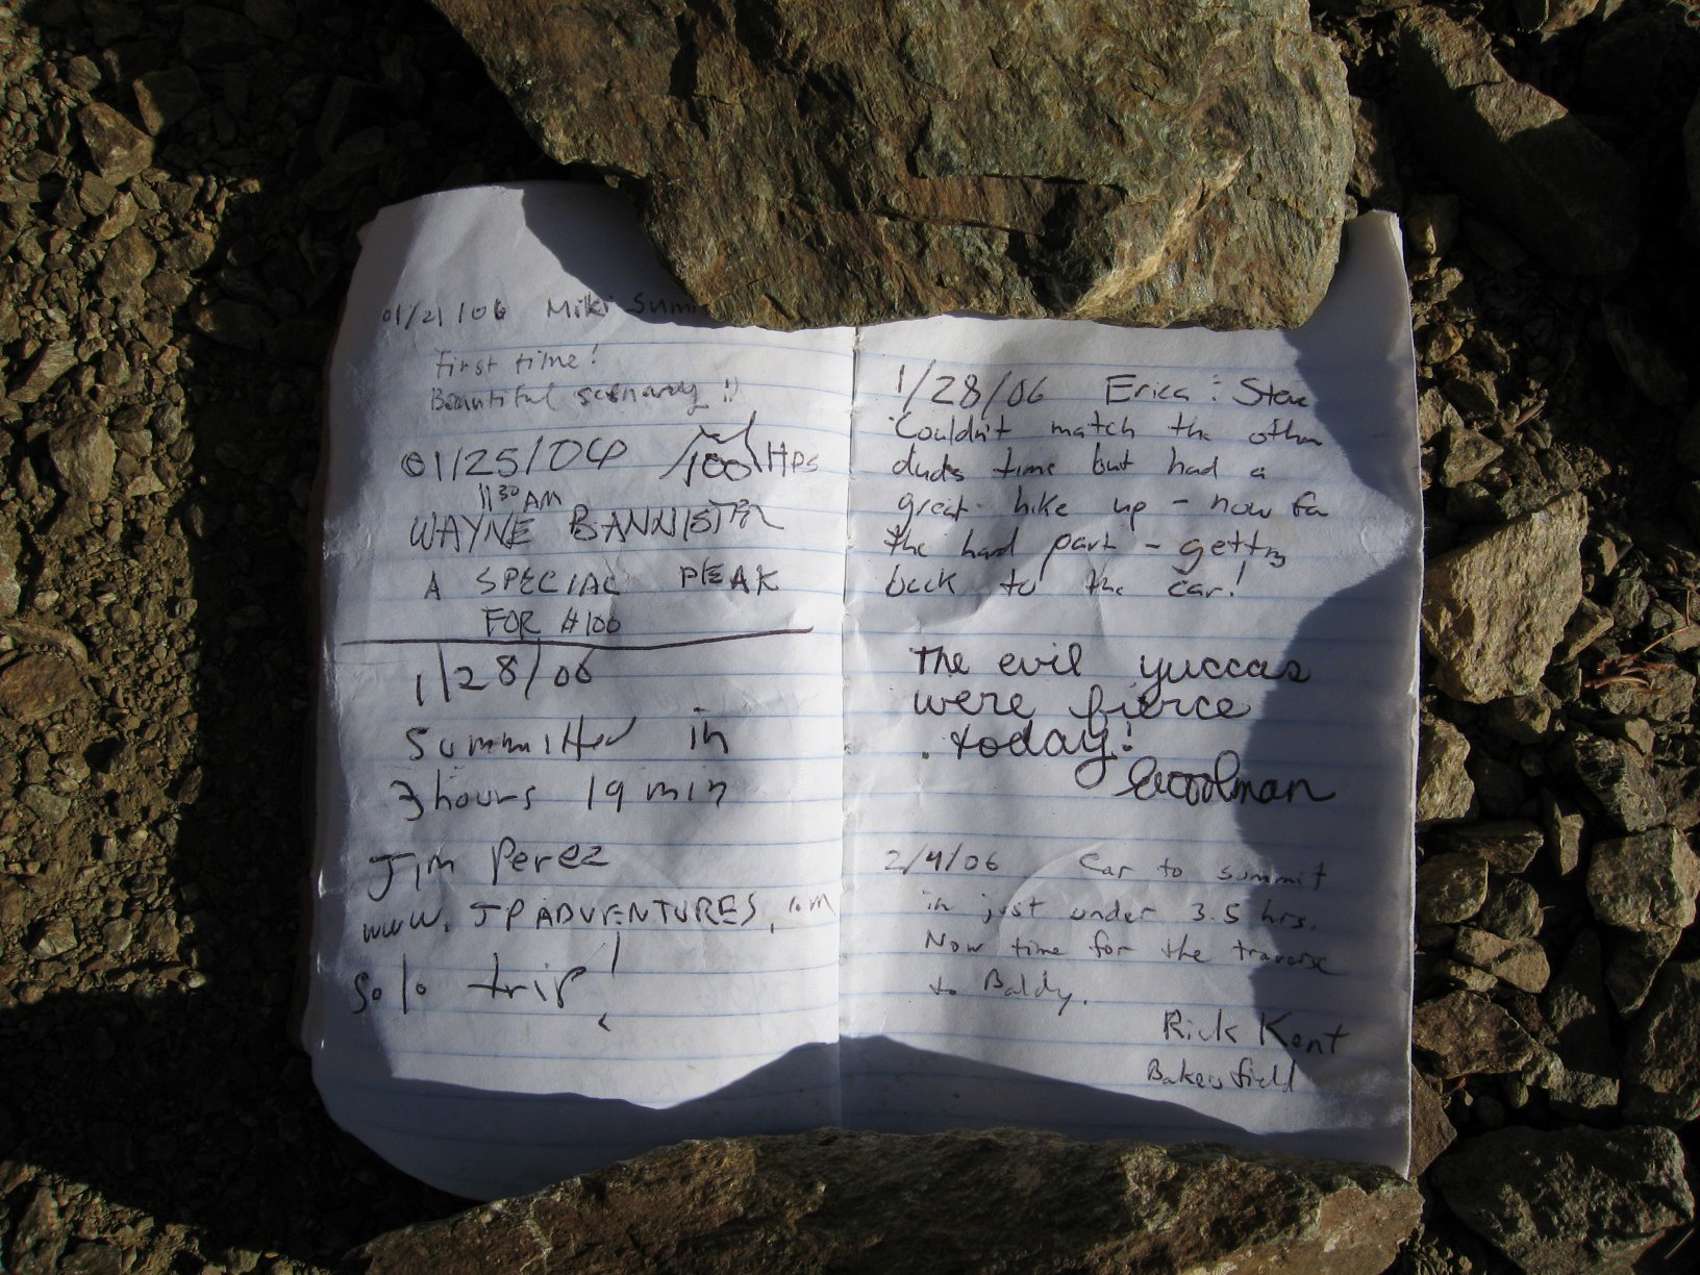 01/21/06 Miki
First time!
Beautiful scenary :)
01/25/06 100 HPS
11:30 AM
WAYNE BANNISTER
A SPECIAL PEAK
FOR #100
1/28/06
Summitted in
3 hours 19 min
Jim Perez
www.JPADVENTURES.com
Solo trip!
1/28/06 Erica & Steve
Couldn't match the other
duds time but had a
great hike up - now for
the hard part - getting
back to the car!
The evil yuccas
were fierce
today!
Woodman
2/4/06 Car to summit
in just under 3.5 hrs.
Now time for the traverse
to Baldy.
Rick Kent
Bakersfield